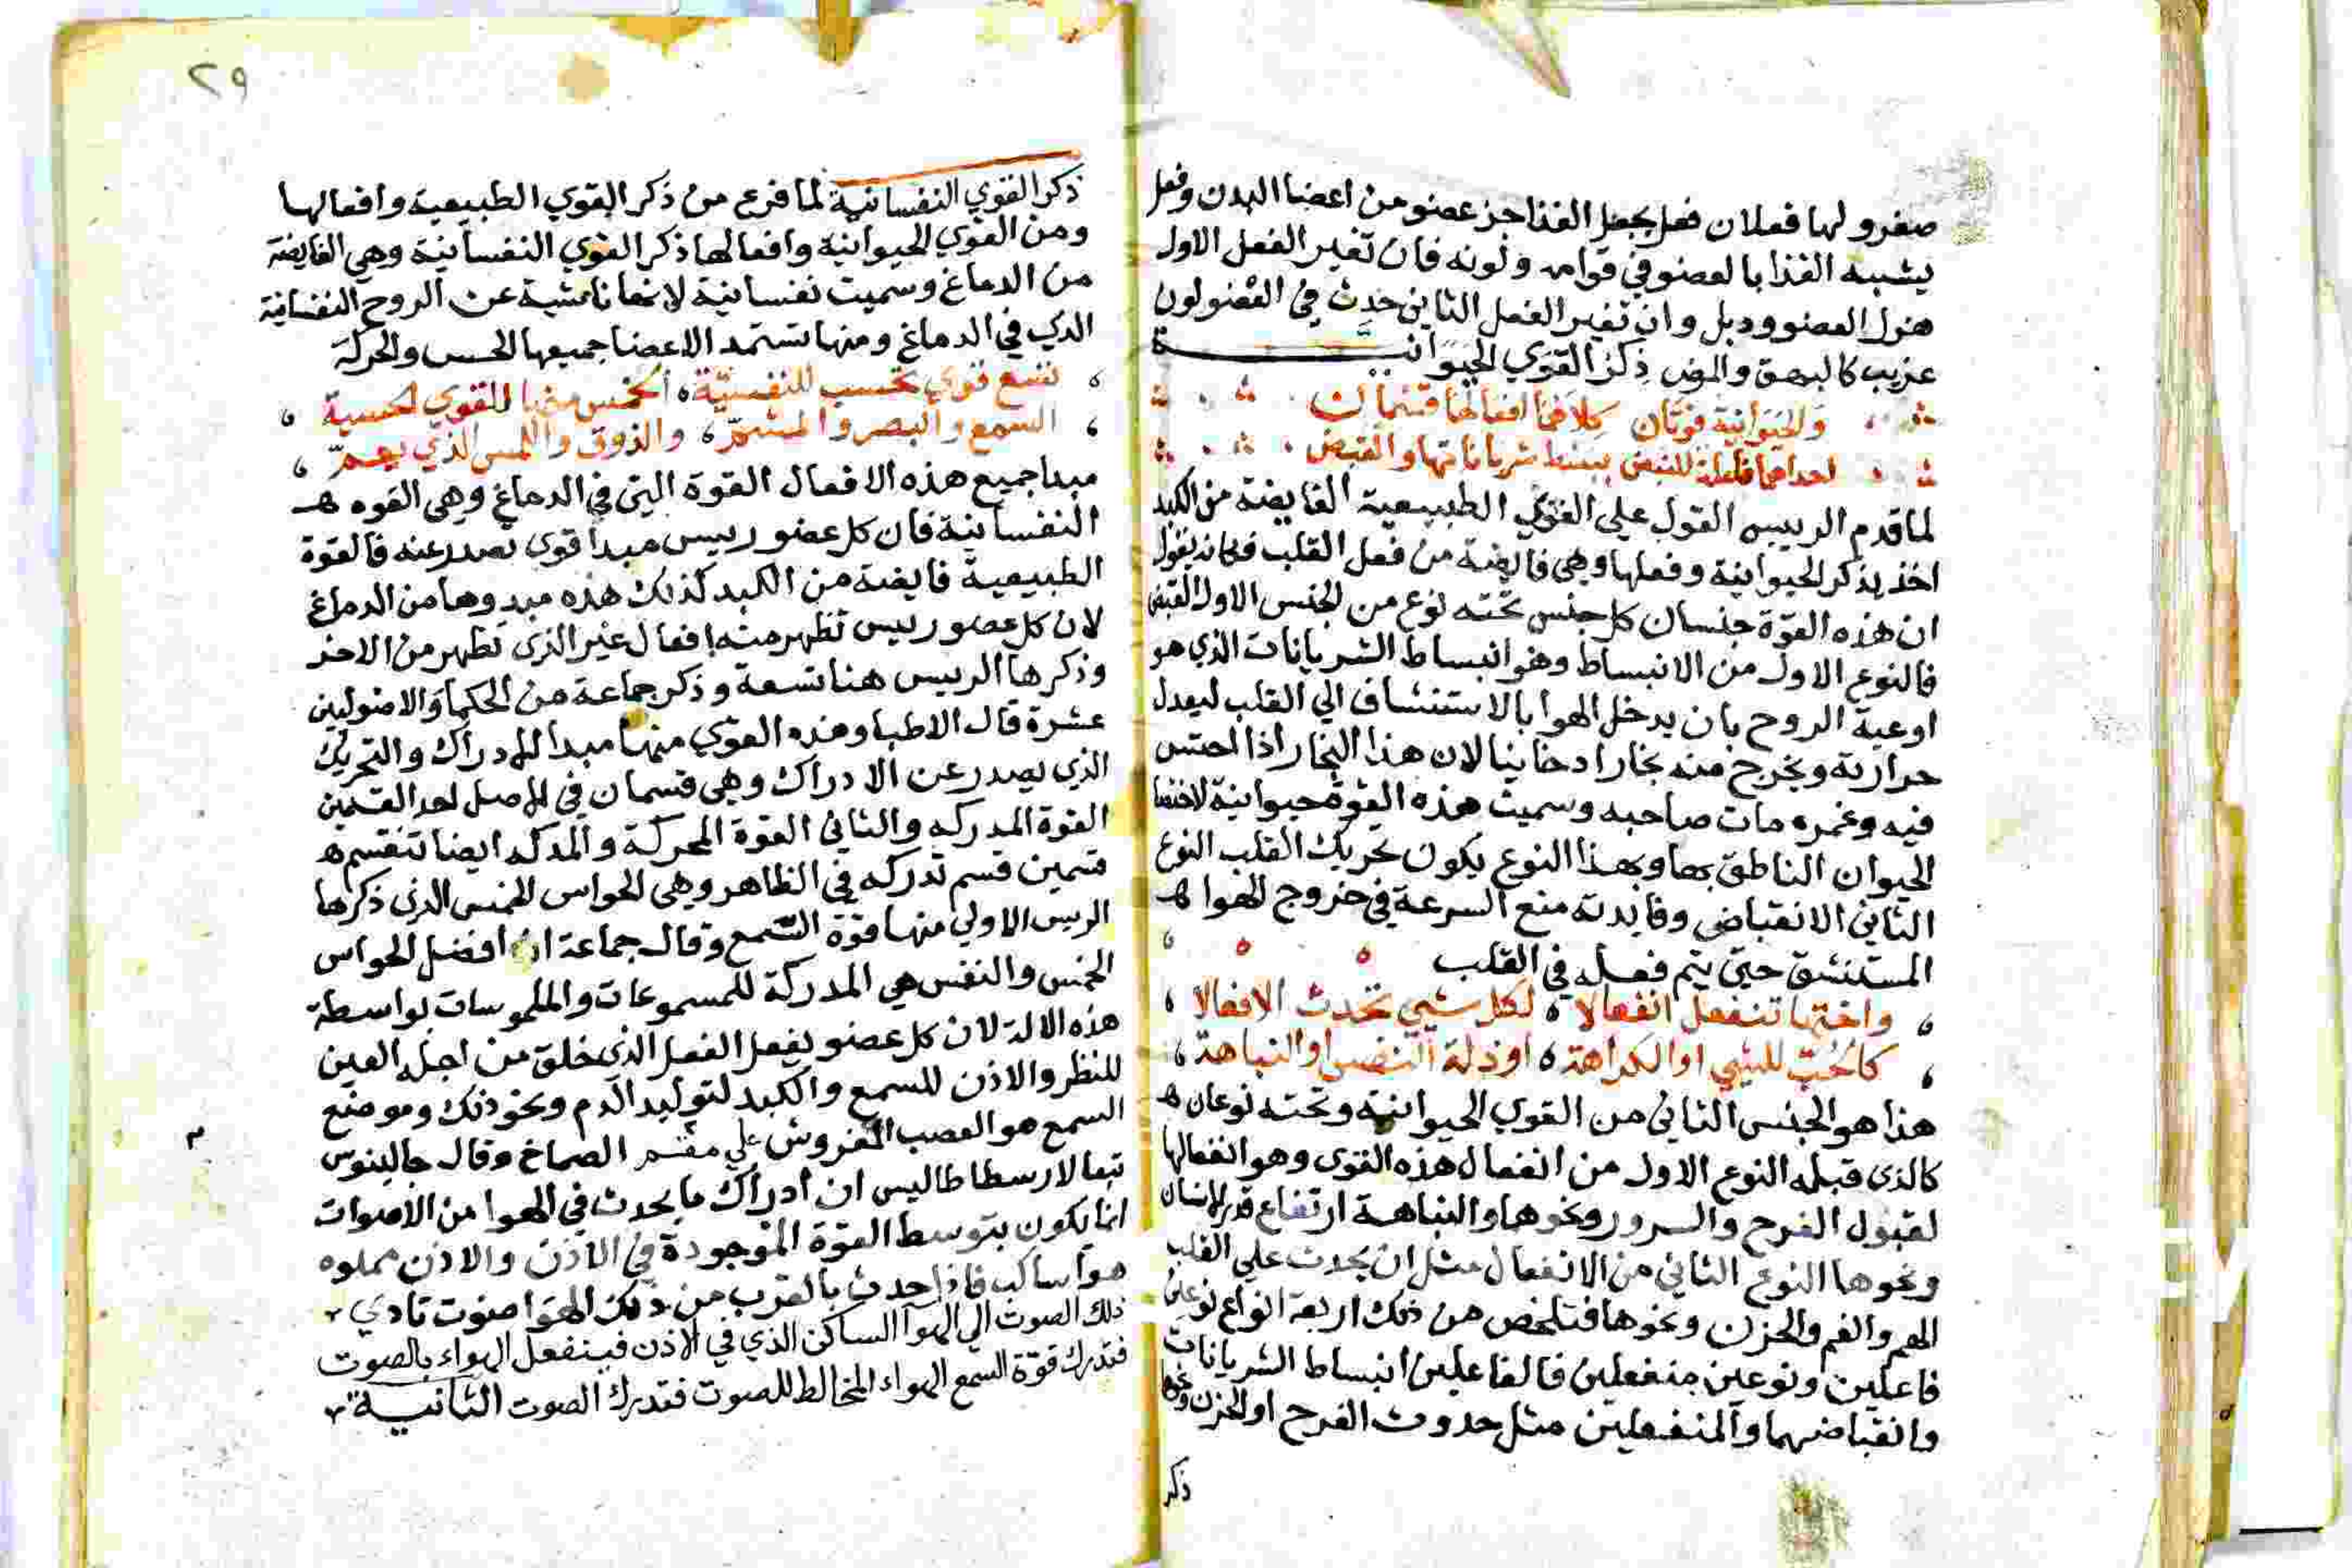 صغر ولها فعلان فعل يجعل الغذا جز عضو من اعضا البدن وفعل
يشبه الغذا بالعضو في قوامه ولونه فان تغير الفعل الاول
هزل العضو ودبل وان تغير الفعل الثاني حدث في العضو لون
غريب كالبهق والبرص ذكر القوي الحيوانية
والحيوانية قوتان كلاهما افعالها قسمان
احداهما فاعلة للنبض ببسط شرياناتها والقبض
لما قدم الرييس القول علي القوي الطبيعية الفايضة من الكبد
اخذ يذكر الحيوانية وفعلها وهي فايضة من فعل القلب فكانه يقول
ان هذه القوة جنسان كل جنس تحته نوع من الجنس الاول القبض
فالنوع الاول من الانبساط وهو انبساط الشريانات الذي هو
اوعية الروح بان يدخل الهوا بالاستنشاف الي القلب ليعدل
حرارته ويخرج منه بخارا دخانيا لان هذا البخار اذا احتبس
فيه وغمره مات صاحبه وسميت هذه القوة حيوانية لاختفا
الحيوان الناطق بها وبهذا النوع يكون تحريك القلب النوع
الثاني الانقباضي وفايدته منع السرعة في خروج الهوا
المستنشق حتي يتم فعله في القلب
واختها تنفعل انفعالا لكل شيي تحدث الافعالا
كالحب للشيي او الكراهة او ذلة النفس او النباهة
هذا هو الجنس الثاني من القوي الحيوانية وتحته نوعان
كالذي قبله النوع الاول من انفعال هذه القوي وهو انفعالها
لقبول الفرح والسرور ونحوها والنباهة ارتفاع قدر الانسان
ونحوها النوع الثاني من الانفعال مثل ان يحدث علي القلب
الهم والغم والحزن ونحوها فتلخص من ذلك اربعة انواع نوعين
فاعلين ونوعين منفعلين فالفاعلين انبساط الشريانات
وانقباضهما والمنفعلين مثل حدوث الفرح او الحزن ونحوها
ذكر
٢٩
ذكر القوي النفسانية لما فرغ من ذكر القوي الطبيعية وافعالها
ومن القوي الحيوانية وافعالها ذكر القوي النفسانية وهي الفايضة
من الدماغ وسميت نفسانية لانها ناشية عن الروح النفسانية
الذي في الدماغ ومنها تستمد الاعضا جميعها الحس والحركة
تسع قوي تحسب للنفسية الخمس منها للقوي الحسية
السمع والبصر والمشم والذوق واللمس الذي يعم
مبدا جميع هذه الافعال القوة التي في الدماغ وهي القوه
النفسانية فان كل عضو رييس مبدا قوي تصدر عنه فالقوة
الطبيعية فايضة من الكبد كذلك هذه مبدوها من الدماغ
لان كل عضو رييس تظهر منه افعال غير الذي تظهر من الاخر
وذكرها الرييس هنا تسعة وذكر جماعة من الحكما والاصوليين
عشرة قال الاطبا وهذه القوي منها مبدا للادراك والتحريك
الذي يصدر عن الادراك وهي قسمان في الاصل احد القسمين
القوة المدركه والثاني القوة المحركة والمدكه ايضا تنقسم
قسمين قسم تدركه في الظاهر وهي الحواس الخمس الذي ذكرها
الرييس الاولي منها قوة السمع وقال جماعة ان افضل الحواس
الخمس والنفس هي المدركة للمسموعات والملموسات بواسطة
هذه الالة لان كل عضو يفعل الفعل الذي خلق من اجله العين
للنظر والاذن للسمع والكبد لتوليد الدم ونحو ذلك وموضع
السمع هو العصب المفروش علي مقسم الصماخ وقال جالينوس
تبعا لارسطاطاليس ان ادراك ما يحدث في الهوا من الاصوات
انما يكون بتوسط القوة الموجودة في الاذن والاذن مملوه
هوا ساكب فاذا حدث بالقرب من ذلك الهوا صوت تادي
ذلك الصوت الي الهوا الساكن الذي في الاذن فينفعل الهواء بالصوت
فتدرك قوة السمع الهواء المخالط للصوت فتدرك الصوت الثانية